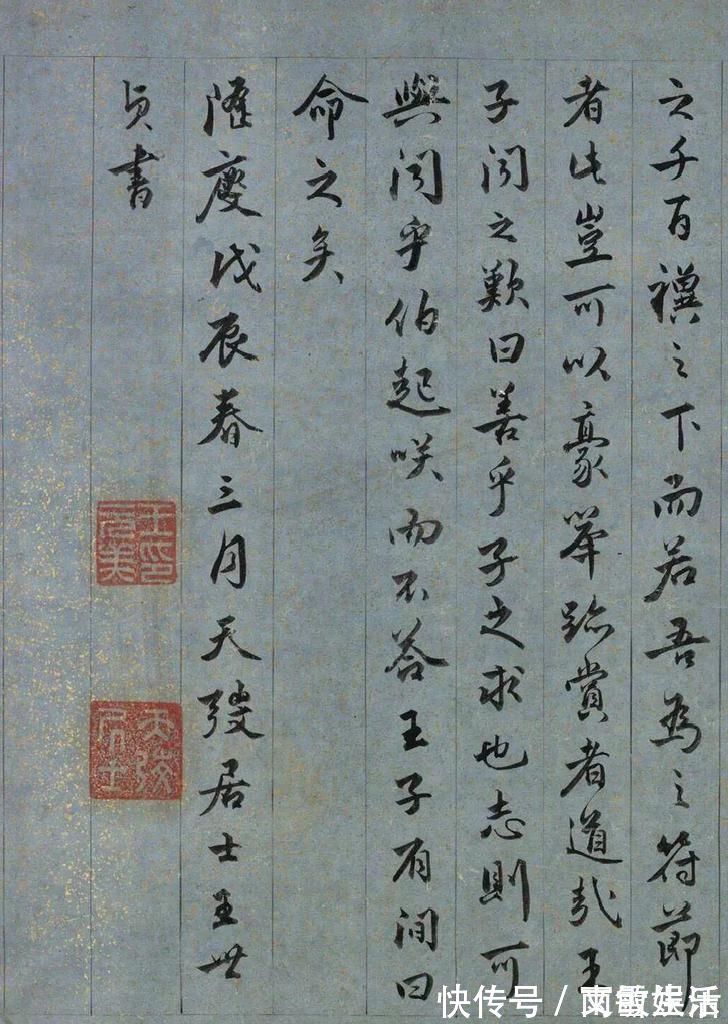 之千百禩之下而若吾為之符節
者此豈可以豪舉跡賞者道哉王
子聞之歎曰善乎子之求也志則可
與聞乎伯起咲而不荅王子有間曰
命之矣
隆慶戊辰春三月天弢居士王世
貞書
天弢居士
快传号 /